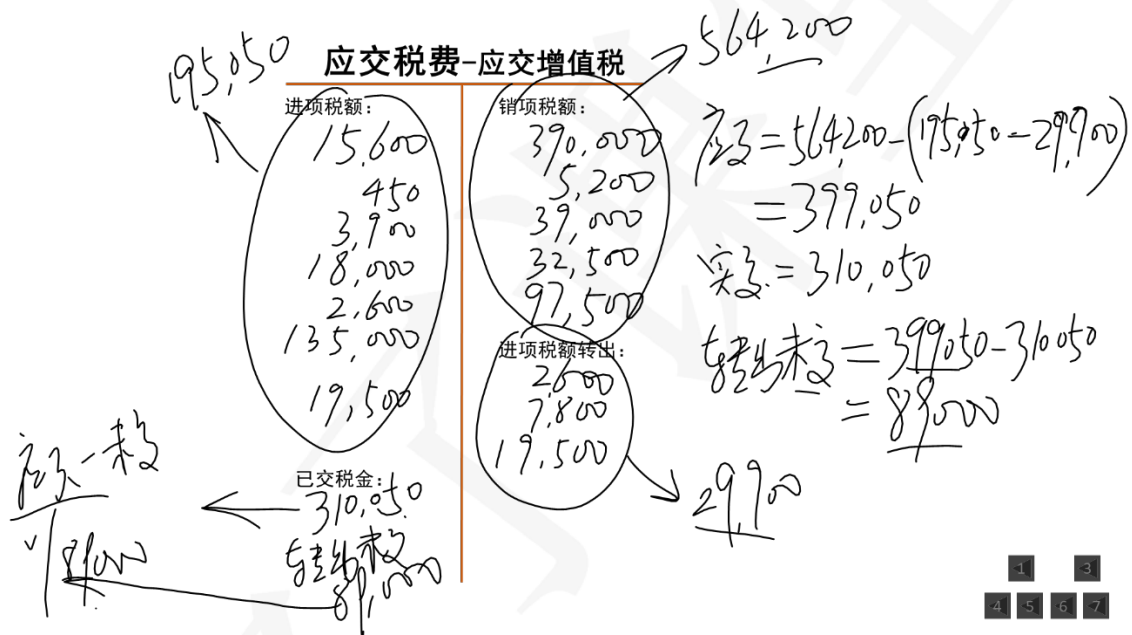 564,200
195,050
应交税费-应交增值税
进项税额：
15,600
450
3,900
18,000
2,600
135,000
19,500
已交税金：
310,050
转出未交
89,000
销项税额：
390,000
5,200
39,000
32,500
97,500
进项税额转出：
2,600
7,800
19,500
29,900
应交=564,200-(195,050-29,900)
=399,050
实交=310,050
转出未交=399,050-310,050
=89,000
应交-未交
89,000
1
3
4
5
6
7